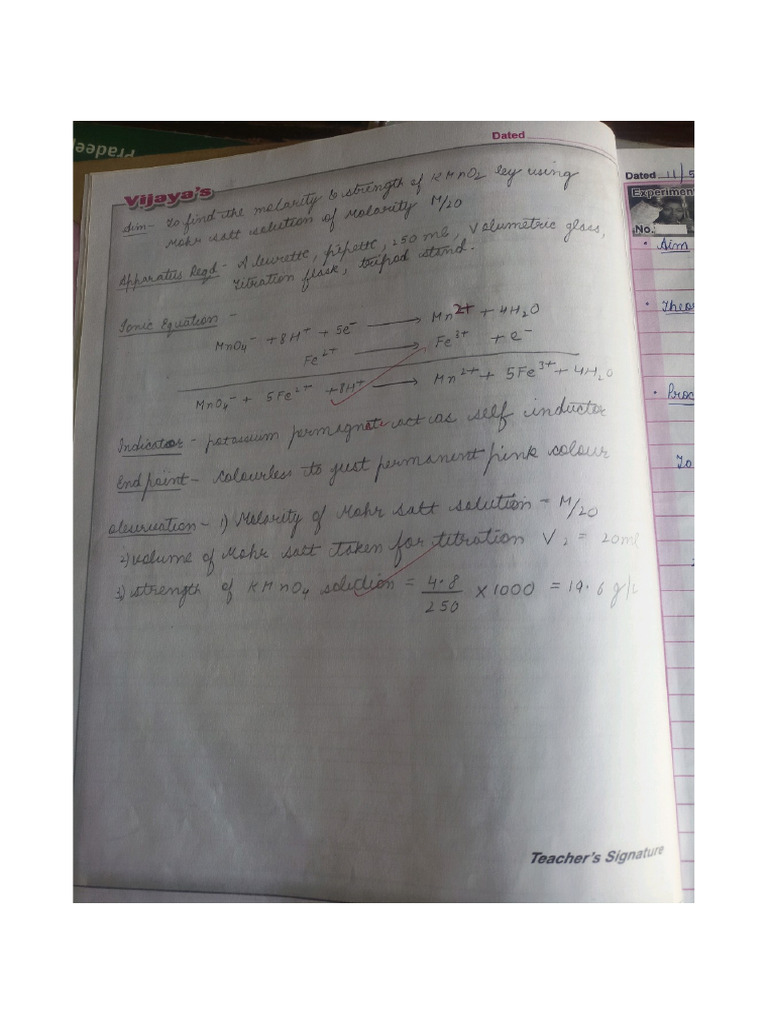 Pradeep
Dated
Vijaya's
Aim- To find the molarity & strength of KMnO2 by using
Mohr salt solution of Molarity M/20
Apparatus Reqd - A burette, pipette, 250 ml, Volumetric glass,
titration flask, tripod stand.
Ionic Equation -
MnO4⁻ + 8H⁺ + 5e⁻ ⟶ Mn²⁺ + 4H2O
Fe²⁺ ⟶ Fe³⁺ + e⁻
MnO4⁻ + 5Fe²⁺ + 8H⁺ ⟶ Mn²⁺ + 5Fe³⁺ + 4H2O
Indicator - potassium permagnate act as self inductor
End point - Colourless to just permanent pink colour
Observation - 1) Molarity of Mohr salt solution = M/20
2) volume of Mohr salt taken for titration V2 = 20ml
3) strength of KMnO4 solution = 4.8/250 x 1000 = 19.6 g/L
Teacher's Signature
Dated 11/5
Experiment
No.
• Aim
• Theo
• Proc
To